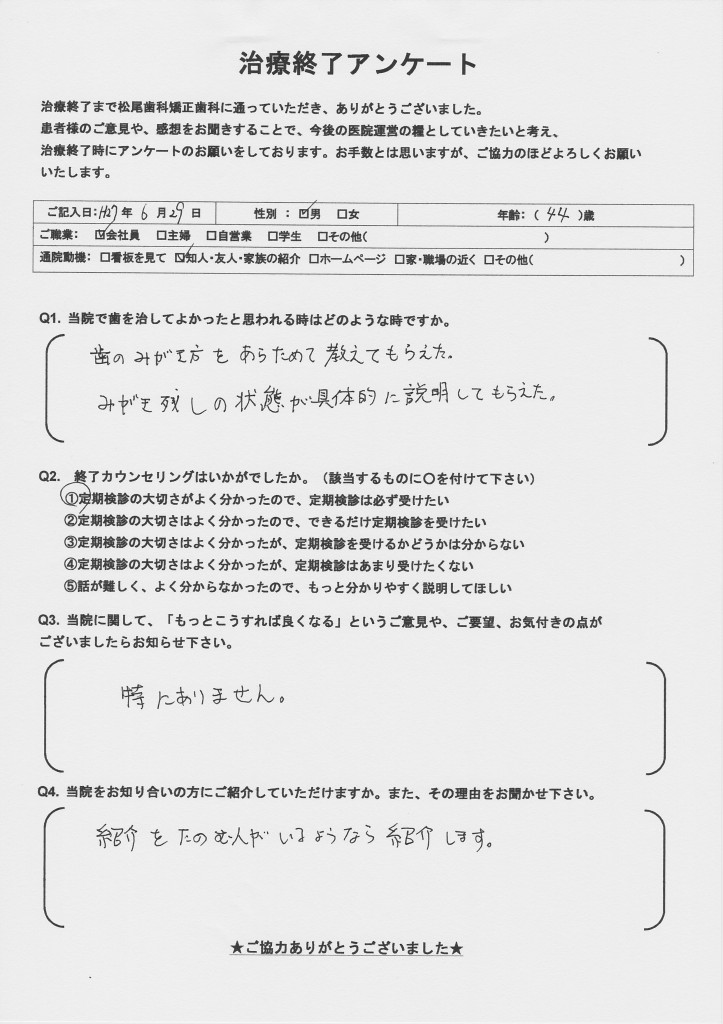 治療終了アンケート
治療終了まで松尾歯科矯正歯科に通っていただき、ありがとうございました。
患者様のご意見や、感想をお聞きすることで、今後の医院運営の糧としていきたいと考え、
治療終了時にアンケートのお願いをしております。お手数とは思いますが、ご協力のほどよろしくお願い
いたします。
ご記入日:H27年 6月29日 性別 : ☑男 □女 年齢:( 44 )歳
ご職業: ☑会社員 □主婦 □自営業 □学生 □その他( )
通院動機: □看板を見て ☑知人・友人・家族の紹介 □ホームページ □家・職場の近く □その他( )
Q1. 当院で歯を治してよかったと思われる時はどのような時ですか。
歯のみがき方をあらためて教えてもらえた。
みがき残しの状態が具体的に説明してもらえた。
Q2. 終了カウンセリングはいかがでしたか。(該当するものに〇を付けて下さい)
①定期検診の大切さがよく分かったので、定期検診は必ず受けたい
②定期検診の大切さはよく分かったので、できるだけ定期検診を受けたい
③定期検診の大切さはよく分かったが、定期検診を受けるかどうかは分からない
④定期検診の大切さはよく分かったが、定期検診はあまり受けたくない
⑤話が難しく、よく分からなかったので、もっと分かりやすく説明してほしい
Q3. 当院に関して、「もっとこうすれば良くなる」というご意見や、ご要望、お気付きの点が
ございましたらお知らせ下さい。
特にありません。
Q4. 当院をお知り合いの方にご紹介していただけますか。また、その理由をお聞かせ下さい。
紹介をたのむ人がいるようなら紹介します。
★ご協力ありがとうございました★